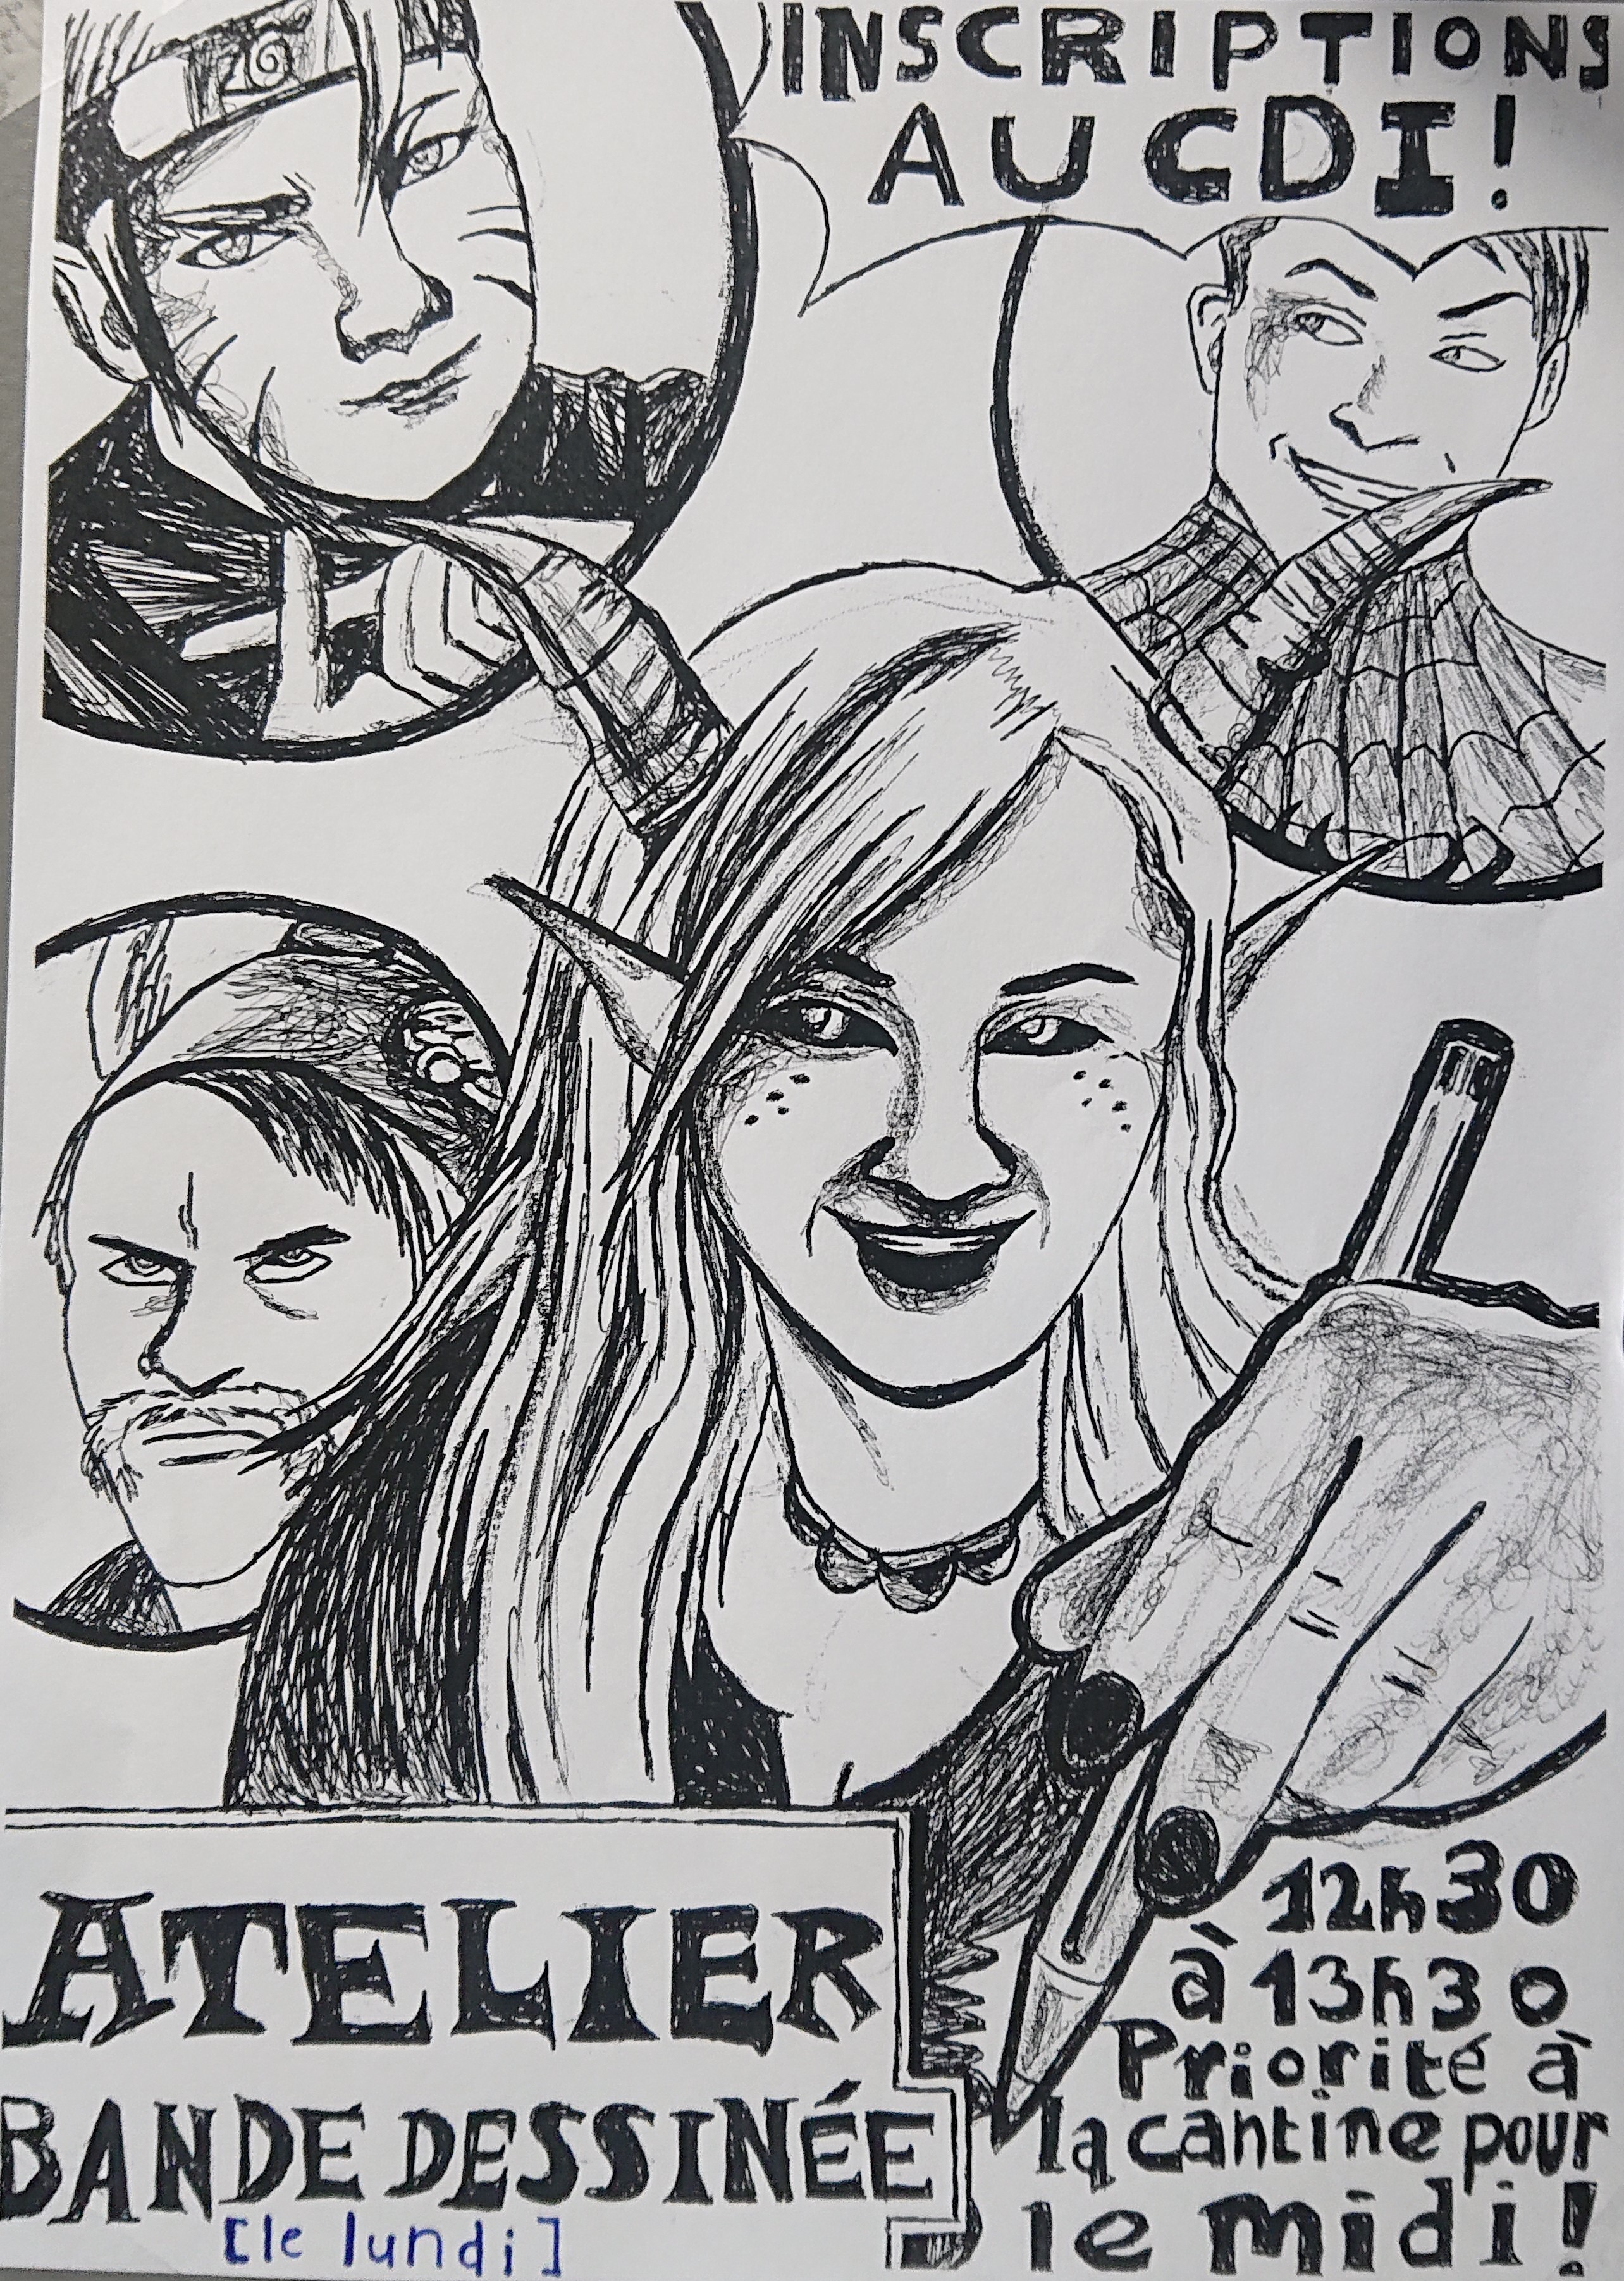 INSCRIPTIONS
AU CDI!
ATELIER
BANDE DESSINÉE
[le lundi]
12h30
à 13h30
Priorité à
la cantine pour
le midi!